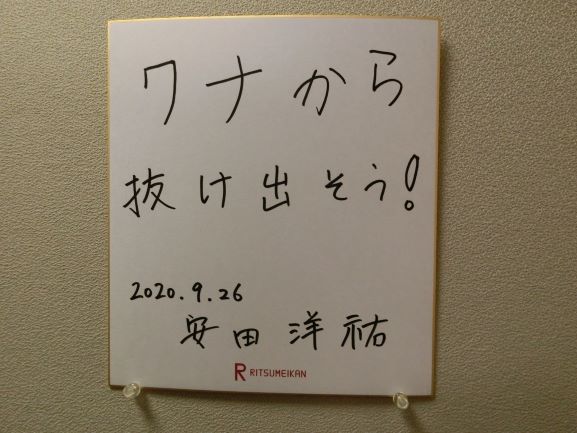 ワナから
抜け出そう!
2020.9.26
安田洋祐
R RITSUMEIKAN